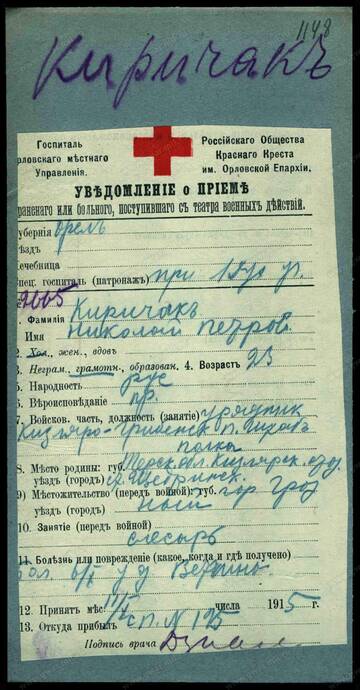 1148
Киричакъ
Госпиталь
рловскаго мѣстнаго
Управленія.
Россійскаго Общества
Краснаго Креста
им. Орловской Епархіи.
УВѢДОМЛЕНІЕ о ПРІЕМѢ
раненаго или больного, поступившаго съ театра военныхъ дѣйствій.
уберніа Орелъ
ѣздъ
ечебница
пец. госпиталь (патронажъ) при
2665
Фамилія Киричакъ
Имя Николай Петров
2. Хол., жен., вдовъ
3. Неграм., грамотн., образован. 4. Возрастъ 23
5. Народность рус
6. Вѣроисповѣданіе пр.
7. Войсков. часть, должность (занятіе) урядник
Кизляро-Гребенск п.
полка
8. Мѣсто родины: губ. Терск. обл. Кизлярск.
уѣздъ (городъ)
9) Мѣстожительство (передъ войной): губ. гор Гроз
уѣздъ (городъ) ный
10. Занятіе (передъ войной)
слесарь
11. Болѣзнь или поврежденіе (какое, когда и гдѣ получено)
12. Принятъ мѣс. числа 1915 г.
13. Откуда прибылъ сп. N 125
Подпись врача